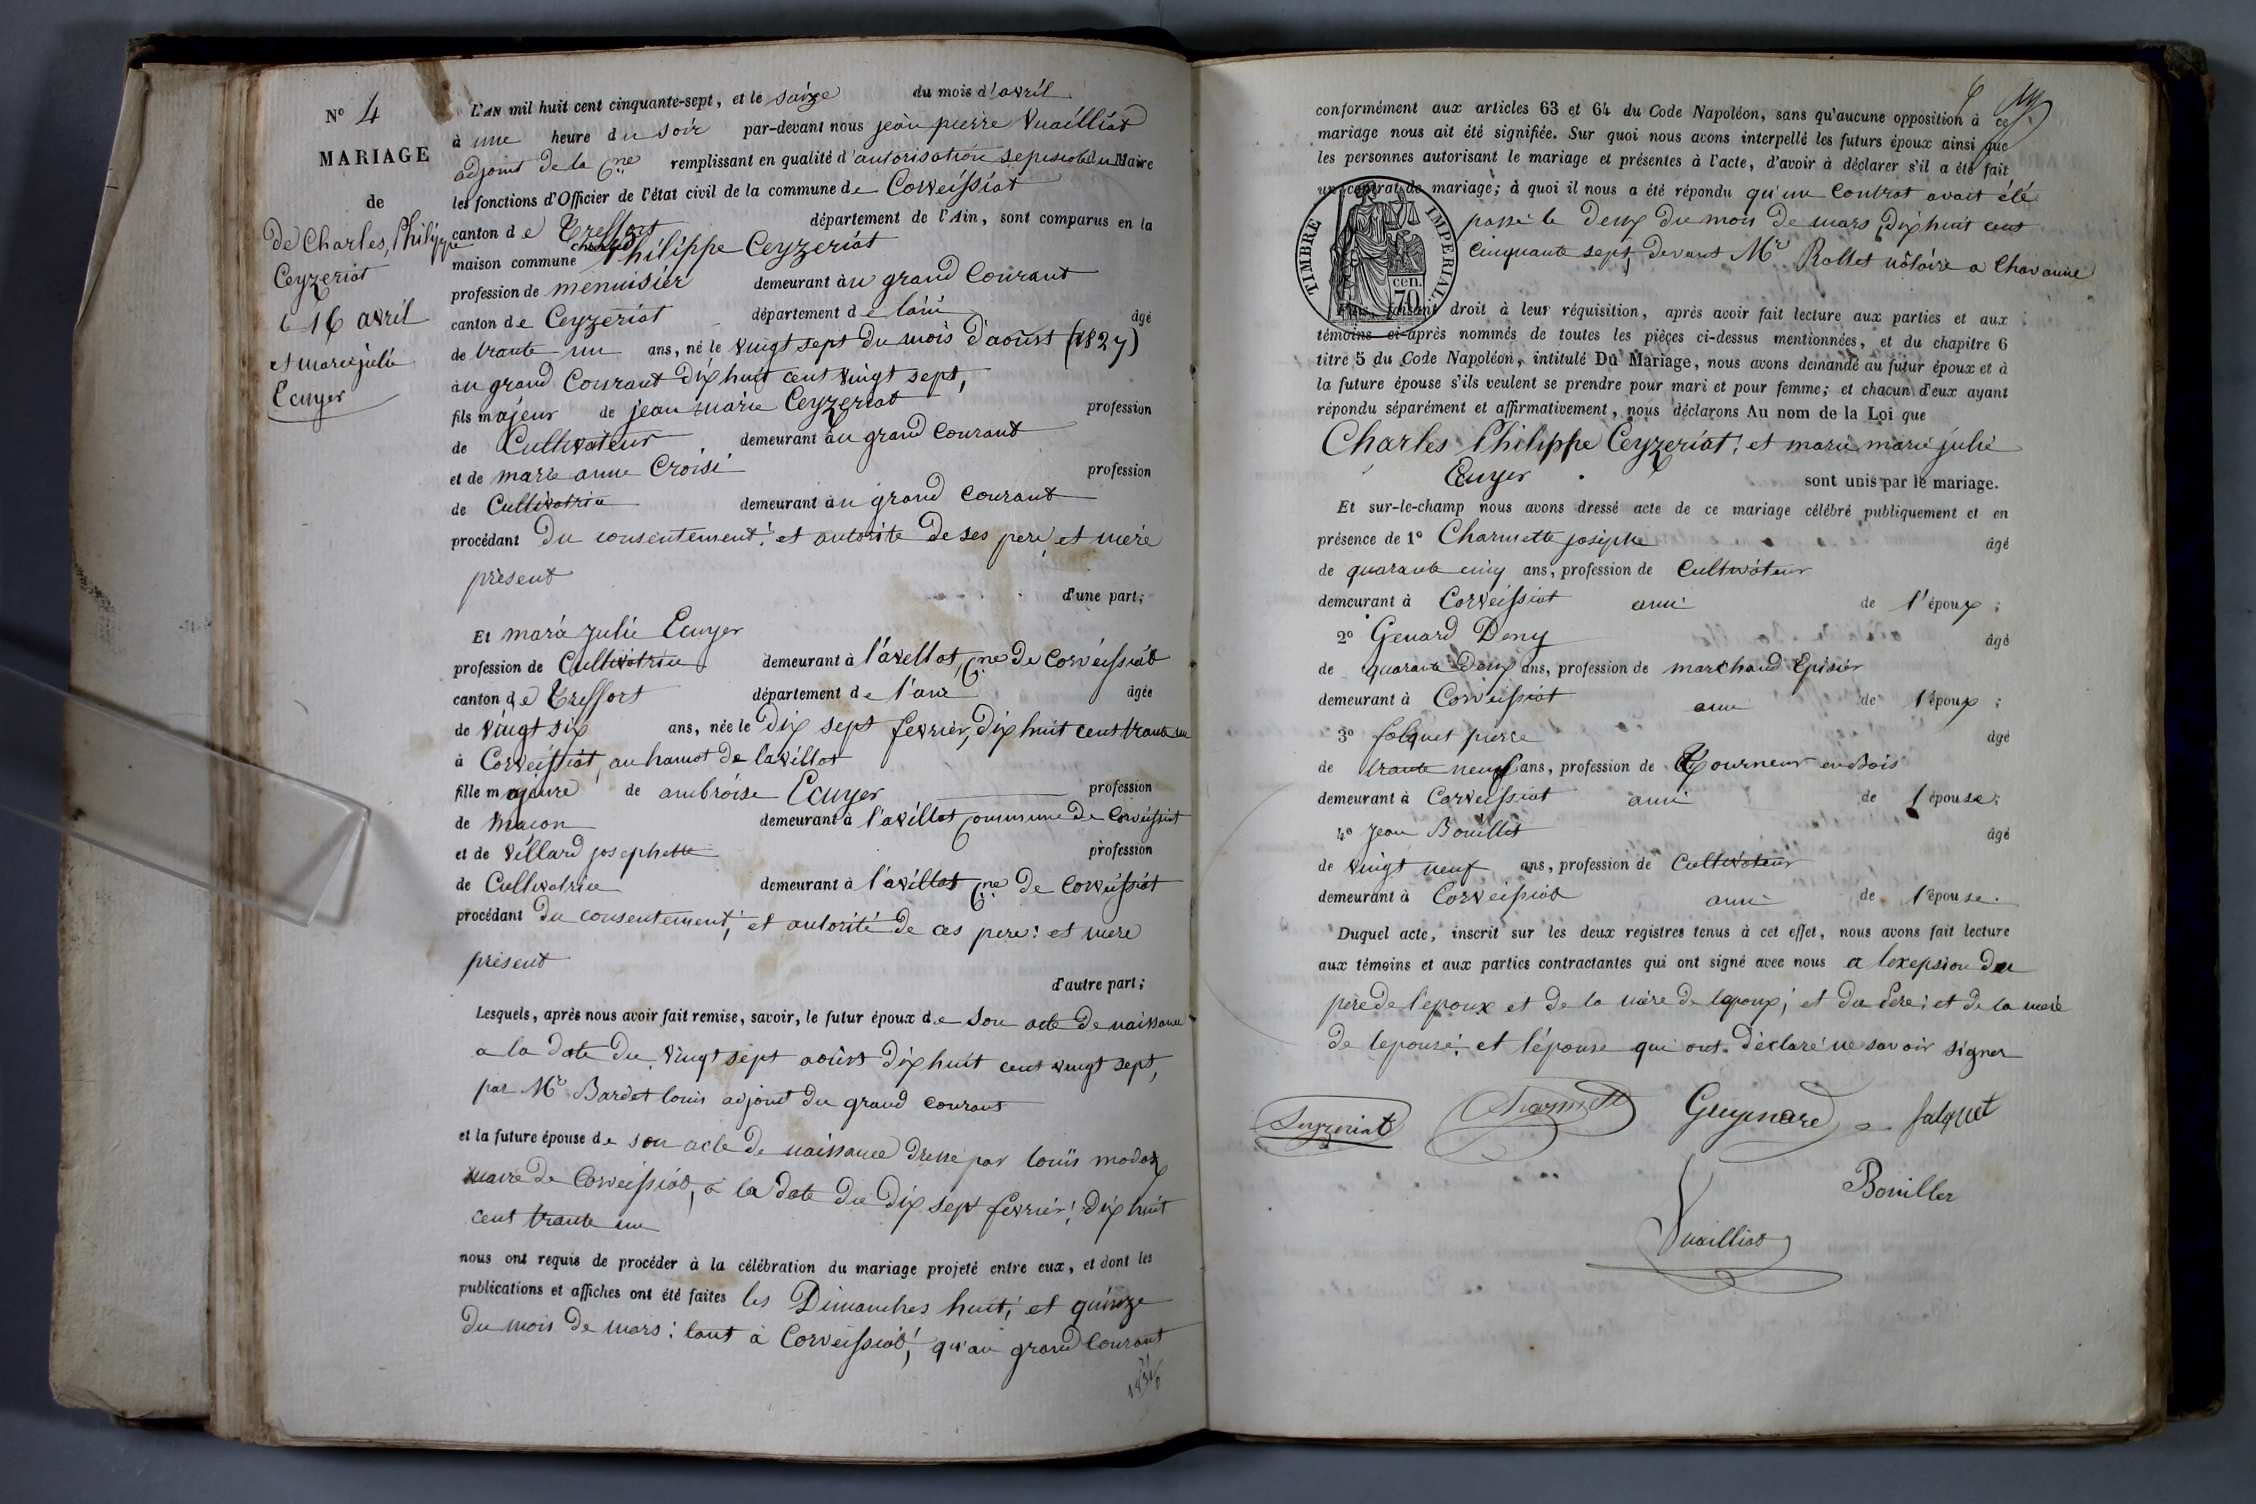 N° 4
MARIAGE
de
De Charles, Philippe
Ceyzeriat
le 16 avril
et marie julie
Ecuyer
L'AN mil huit cent cinquante-sept, et le saize du mois d'avril
à une heure du soir par-devant nous jean pierre Vuailliat
adjoint de la Cne remplissant en qualité d'autorisation du Maire
les fonctions d'Officier de l'état civil de la commune de Corveissiat
canton de Treffort département de l'Ain, sont comparus en la
maison commune charles Philippe Ceyzeriat
profession de menuisier demeurant au grand Courant
canton de Ceyzeriat département de lain âgé
de trante un ans, né le vingt sept du mois d'aoust (1827)
au grand Courant dix huit cent vingt sept,
fils majeur de jean marie Ceyzeriat profession
de Cultivateur demeurant au grand Courant
et de marie anne Croisi profession
de Cultivatrice demeurant au grand Courant
procédant du consentement et autorite de ses pere et mere
présent
d'une part;
Et marie julie Ecuyer
profession de Cultivatrice demeurant à l'avellot, Cne de Corveissiat
canton de Treffort département de l'ain âgée
de vingt six ans, née le dix sept fevrier, dix huit cent trante un
à Corveissiat, au hamot de lavillot
fille majeure de ambroise Ecuyer profession
de macon demeurant à l'avillot commune de Corveissiat
et de Villard josephette profession
de Cultivatrice demeurant à l'avillot Cne de Corveissiat
procédant du consentement, et autorité de ces pere: et mere
présent
d'autre part;
Lesquels, après nous avoir fait remise, savoir, le futur époux de son acte de naissance
a la date du vingt sept août dix huit cent vingt sept,
par Mr Bardet louis adjoint du grand courant
et la future épouse de son acte de naissance dressé par louis modas
maire de Corveissiat, a la date du dix sept fevrier, dix huit
cent trante un
nous ont requis de procéder à la célébration du mariage projeté entre eux, et dont les
publications et affiches ont été faites les Dimanches huit, et quinze
du mois de mars: tant à Corveissiat, qu'au grand Courant
conformément aux articles 63 et 64 du Code Napoléon, sans qu'aucune opposition à ce
mariage nous ait été signifiée. Sur quoi nous avons interpellé les futurs époux ainsi que
les personnes autorisant le mariage et présentes à l'acte, d'avoir à déclarer s'il a été fait
un contrat de mariage; à quoi il nous a été répondu qu'un Contrat avait été
passé le deux du mois de mars, dix huit cent
cinquante sept, devant Mr Rollet nôtaire a Chavanne
TIMBRE IMPERIAL.
70 cen.
droit à leur réquisition, après avoir fait lecture aux parties et aux
témoins ci-après nommés de toutes les pièces ci-dessus mentionnées, et du chapitre 6
titre 5 du Code Napoléon, intitulé Du Mariage, nous avons demandé au futur époux et à
la future épouse s'ils veulent se prendre pour mari et pour femme; et chacun d'eux ayant
répondu séparément et affirmativement, nous déclarons Au nom de la Loi que
Charles Philippe Ceyzeriat, et marie marie julie
Ecuyer sont unis par le mariage.
Et sur-le-champ nous avons dressé acte de ce mariage célébré publiquement et en
présence de 1° Charmette josephe âgé
de quarante cinq ans, profession de Cultivateur
demeurant à Corveissiat ami de l'époux;
2° Genard Deny âgé
de quarante deux ans, profession de marchand Episier
demeurant à Corveissiat ami de l'époux;
3° falquet pierre âgé
de trante neuf ans, profession de Tourneur en Bois
demeurant à Corveissiat ami de l'épouse;
4° Jean Bouillet âgé
de vingt neuf ans, profession de Cultivateur
demeurant à Corveissiat ami de l'épouse.
Duquel acte, inscrit sur les deux registres tenus à cet effet, nous avons fait lecture
aux témoins et aux parties contractantes qui ont signé avec nous a lexepsion du
père de l'epoux et de la mère de lepoux, et du Pere: et de la mere
de lepouse: et l'épouse qui ont déclaré ne savoir signer
Seyzeriat Charmette Guymard falquet
Bouiller
Vuailliat